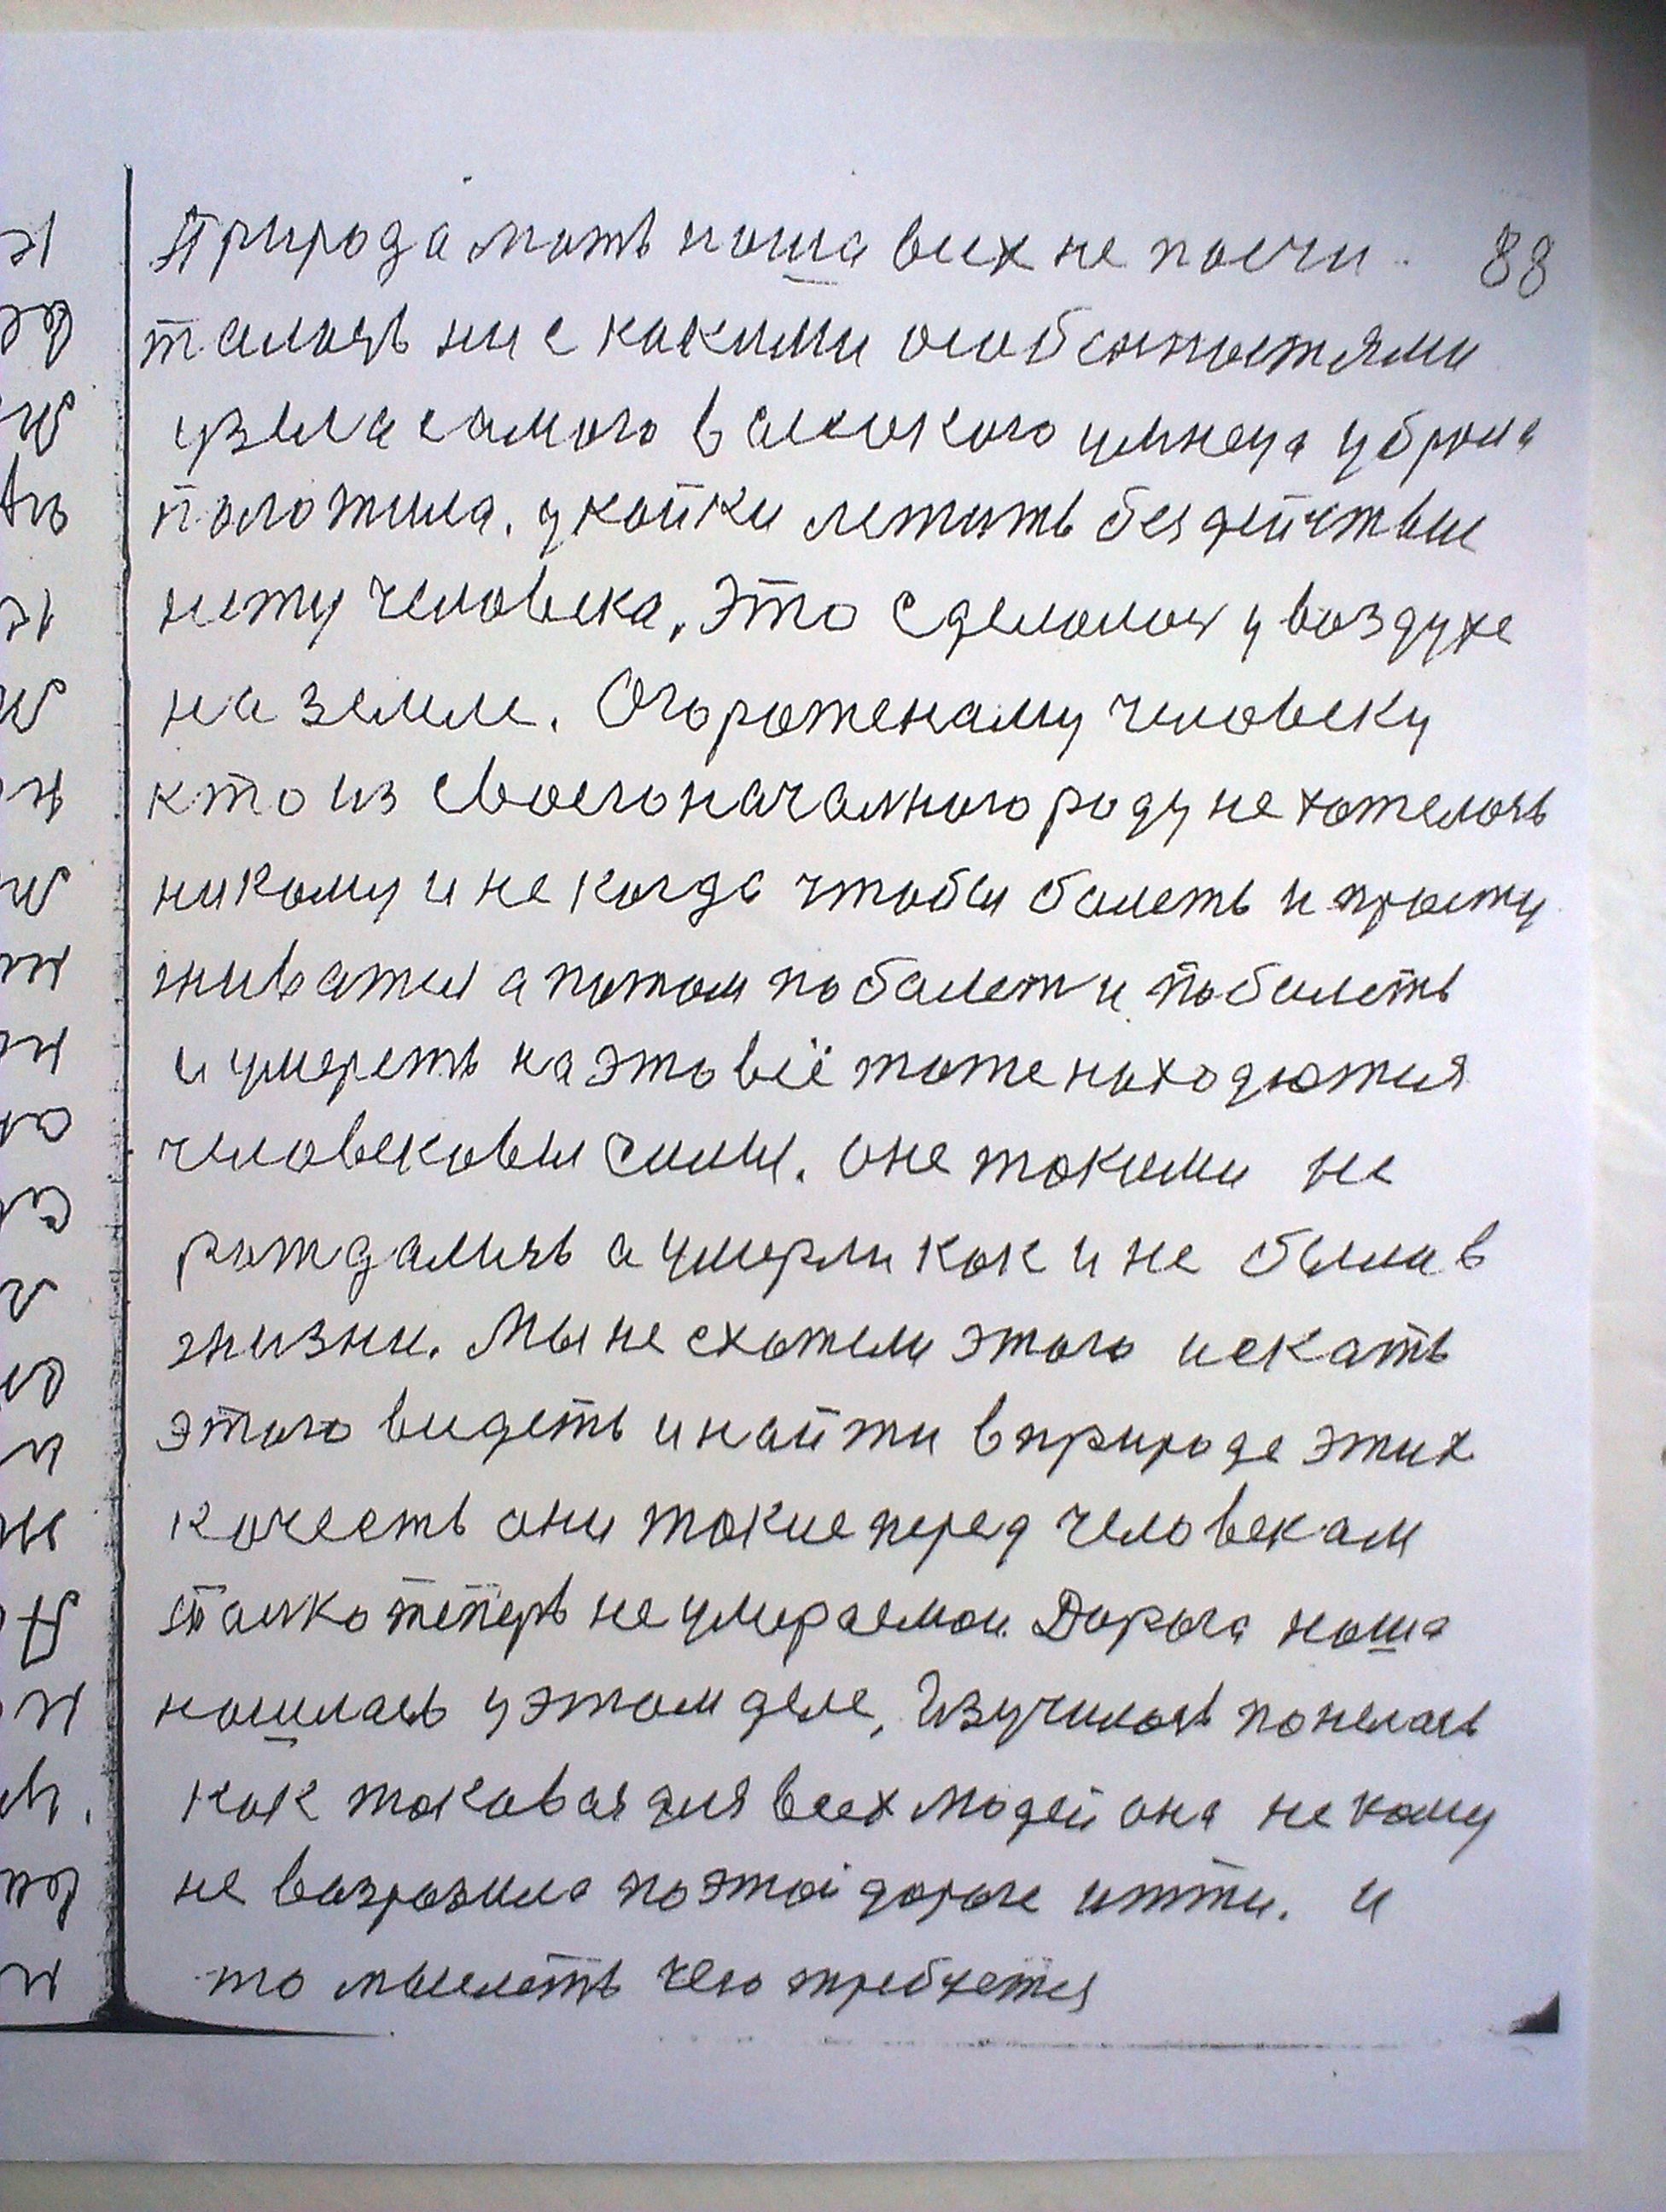 Природа мать наша всих не посчи 88
талось ни с какими особеностями
узяла самого валикого умнеца убрала
положила. у койки лежать без действие
нету человека, это сделолось у воздухе
на земле. Огороженаму человеку
кто из своегоначалного роду не хотелось
никому и не когда чтобы балеть и просту
живатся а потом побалет и поболеть
и умереть на это всё тоже находются
человековы силы. оне токими не
рождались а умерли как и не были в
жизни. Мы не схотели этого искать
этого видеть и найти в природе этих
качесть они токие перед человекам
талко теперь не умираемои. Дорога наша
нашлась у этом деле, Изучилось понелась
как таковая для всех людей она не кому
не вазразила по этой дороге итти. и
то мыслеть чего требуется